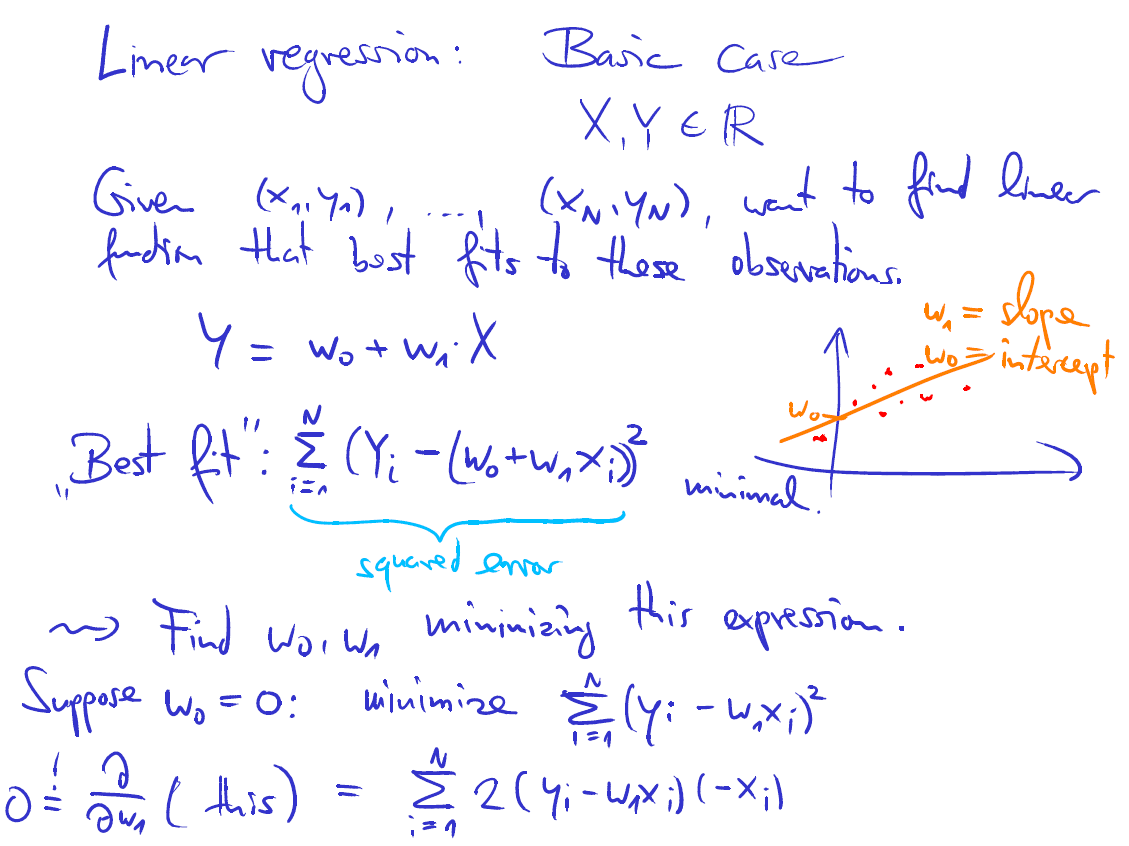 Linear regression: Basic Case
X, Y ∈ ℝ
Given (x₁, y₁), ..., (x_N, y_N), want to find linear
function that best fits to these observations.
w₁ = slope
w₀ = intercept
Y = w₀ + w₁ · X
w₀
„Best fit": ∑_{i=1}^{N} (Y_i - (w₀ + w₁x_i))²
minimal.
squared error
⇝ Find w₀, w₁ minimizing this expression.
Suppose w₀ = 0: minimize ∑_{i=1}^{N} (y_i - w₁x_i)²
0 =! ∂/∂w₁ (this) = ∑_{i=1}^{N} 2(y_i - w₁x_i)(-x_i)